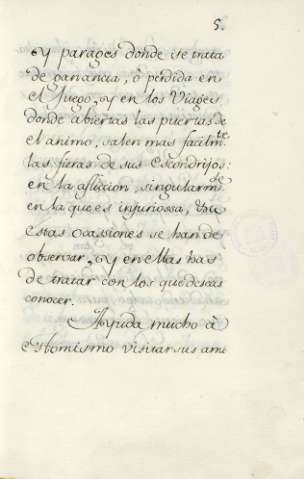 5.
y parages donde se trata
de ganancia, ò perdida en
el Juego, y en los Viages
donde abiertas las puertas de
el animo, salen mas facilm.te
las fieras de sus Escondrijos:
en la afliccion, singularm.te
en la que es injuriossa,
estas ocassiones se han de
observar, y en ellas has
de tratar con los que deseas
conocer.
Ayuda mucho à
esto mismo visitar sus ami